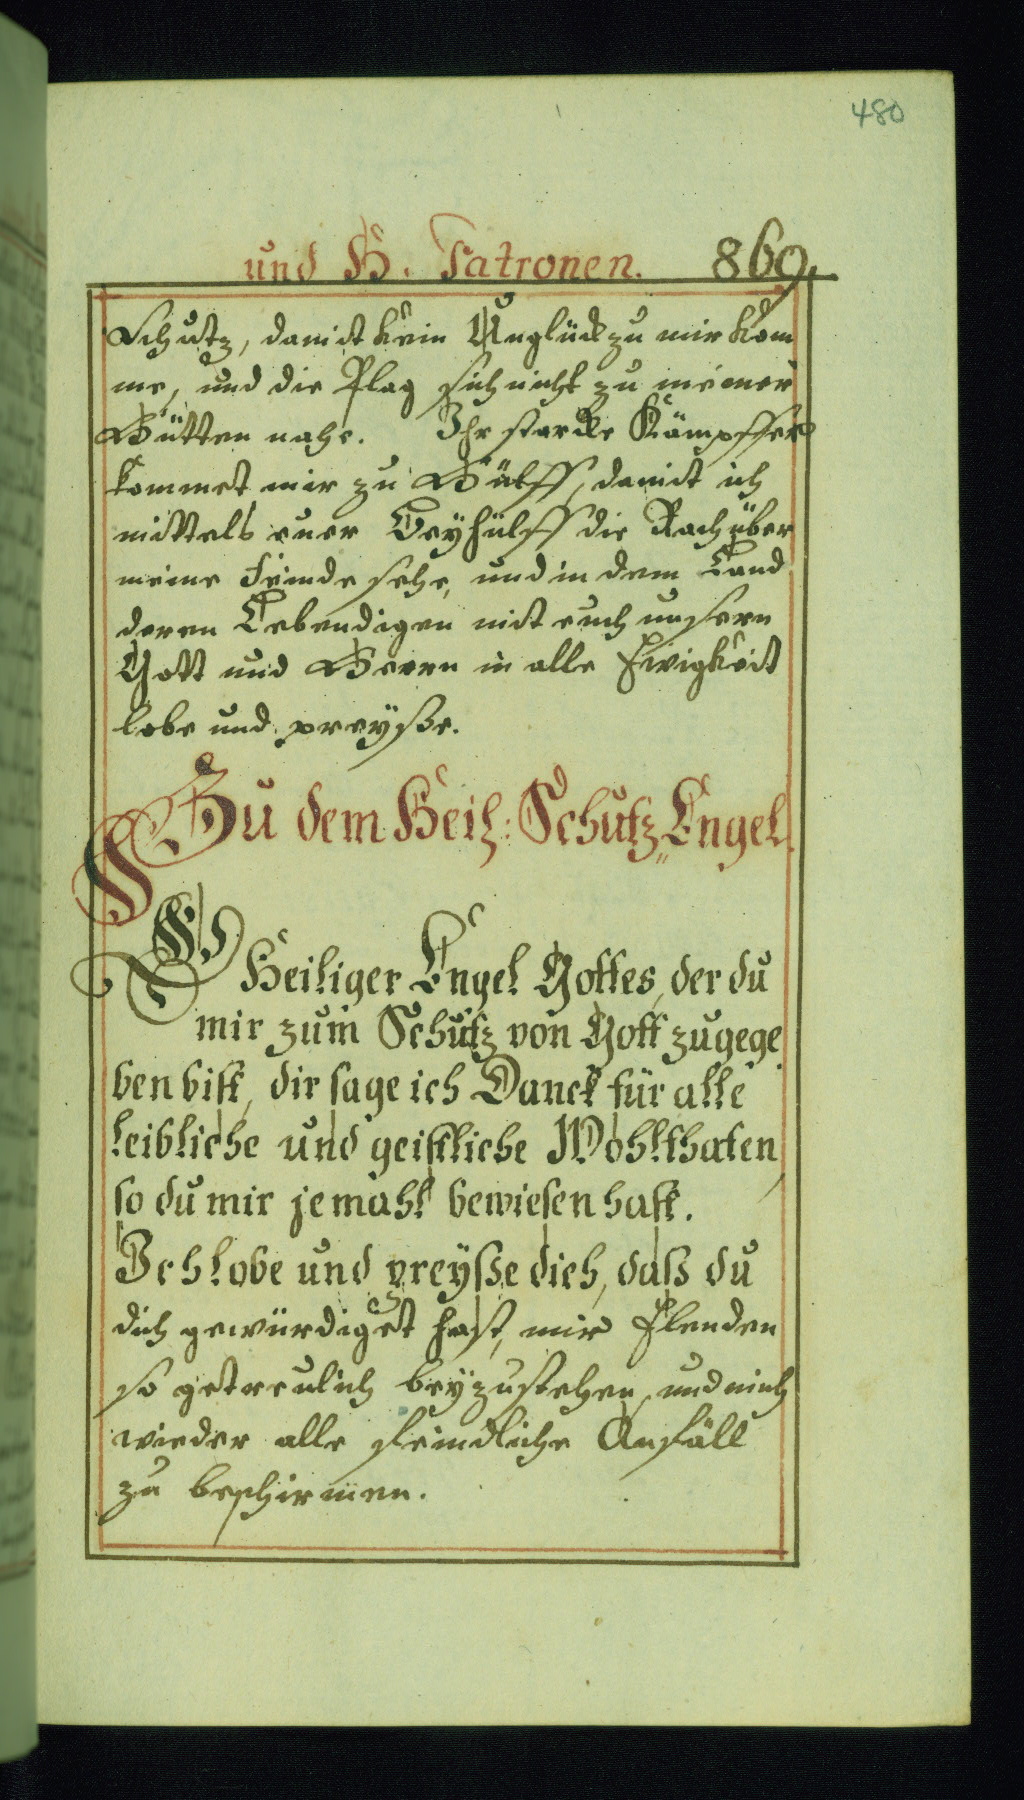 480
und H. Patronen. 869.
Schutz, damit kein Unglück zu mir kom
me, und die Plag sich nicht zu meiner
Hütten nahe. Ihr starcke Kämpffer
kommet mir zu Hülff, damit ich
mittels euer Beyhülff die Rach über
meine Feinde sehe, und in dem Land
deren Lebendigen mit euch unsern
Gott und Herrn in alle Ewigkeit
lobe und preyße.
Zu dem Heil: Schutz„Engel.
O Heiliger Engel Gottes, der du
mir zum Schutz von Gott zugege
ben bist, dir sage ich Danck für alle
leibliche und geistliche Wohlthaten,
so du mir jemahl bewiesen hast.
Ich lobe und preyße dich, daß du
dich gewürdiget hast, mir Elenden
so getreulich beyzustehen, und mich
wieder alle feindliche Anfäll
zu beschirmen.